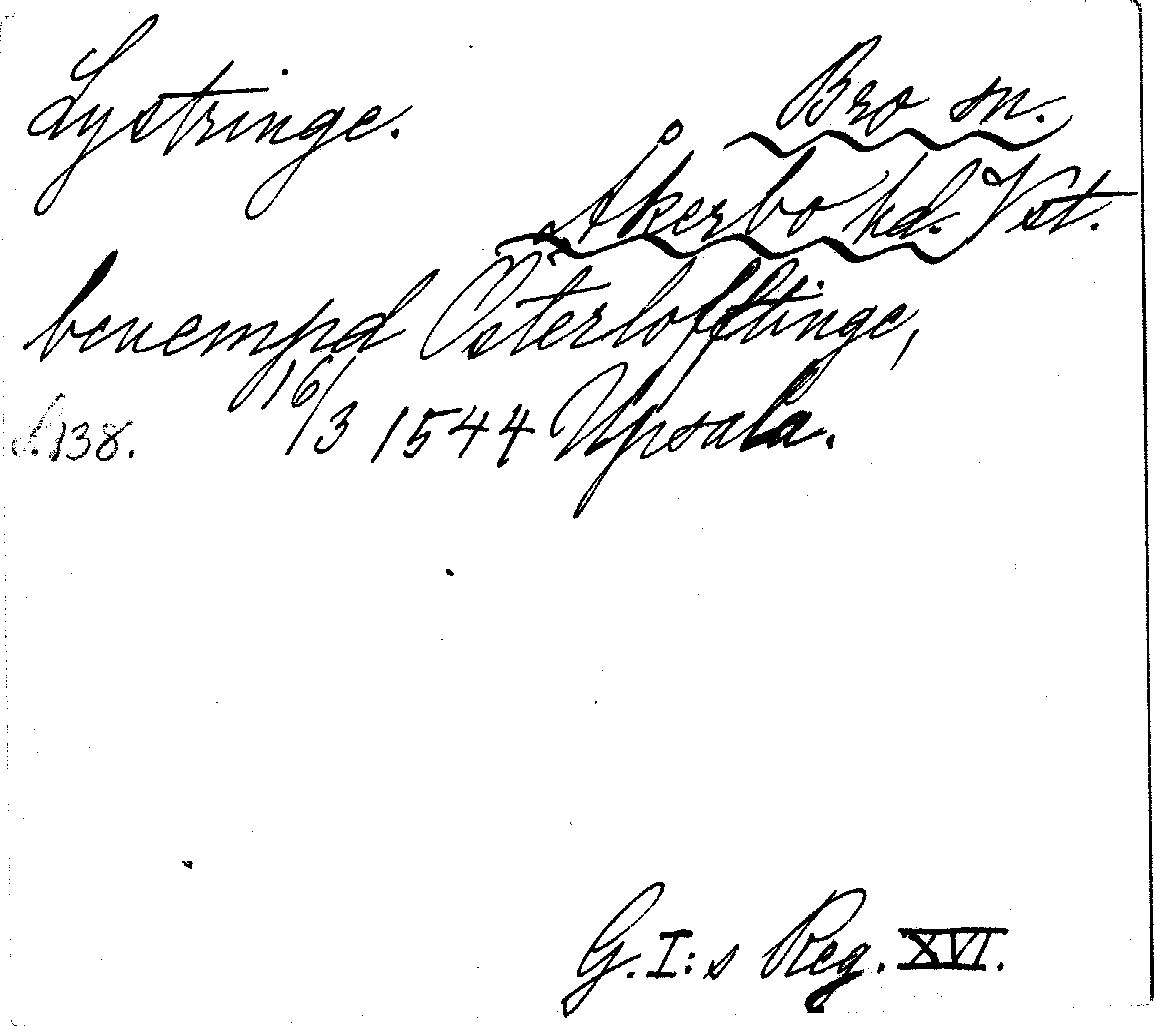 Lystringe.
Bro sn.
Åkerbo hd. Vst.
benempd Österlofftinge,
S. 138. 16/3 1544 Upsala.
G.I:s Reg. XVI.